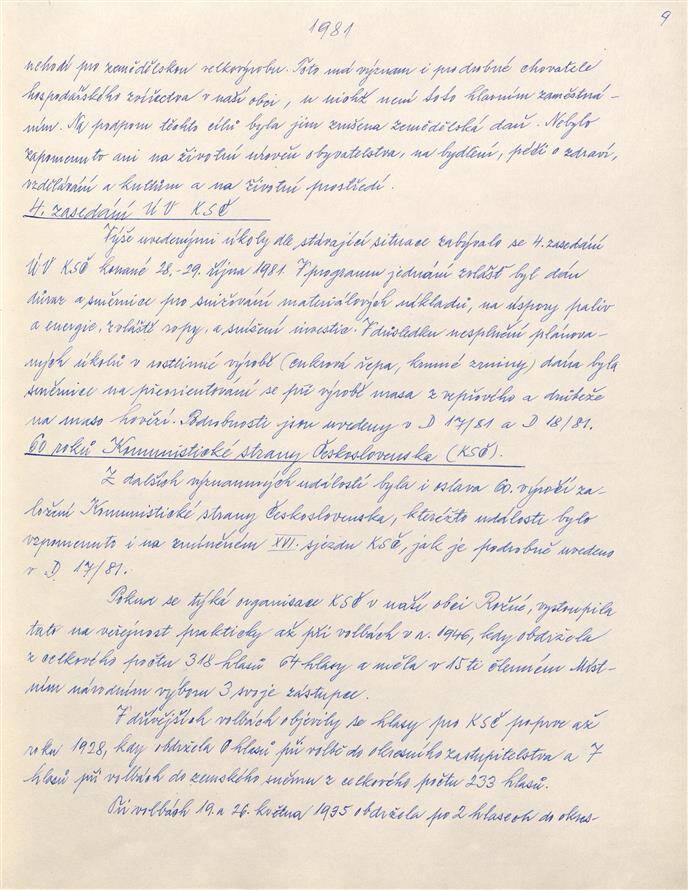 1981
9
nehodí pro zemědělskou velkovýrobu. Toto má význam i pro drobné chovatele
hospodářského zvířectva v naší obci, u nichž není toto hlavním zaměstná-
ním. Na podporu těchto cílů byla jim zrušena zemědělská daň. Nebylo
zapomenuto ani na životní úroveň obyvatelstva, na bydlení, péči o zdraví,
vzdělávání a kulturu a na životní prostředí.
4. zasedání ÚV KSČ
Výše uvedenými úkoly dle stávající situace zabývalo se 4. zasedání
ÚV KSČ konané 28.-29. října 1981. V programu jednání zvlášť byl dán
důraz a směrnice pro snižování materiálových nákladů, na úspory paliv
a energie, zvláště ropy, a snížení investic. V důsledku nesplnění plánova-
ných úkolů v rostlinné výrobě (cukrová řepa, krmné zrniny) dána byla
směrnice na přeorientování se při výrobě masa z vepřového a drůbeže
na maso hovězí. Podrobnosti jsou uvedeny v D 17/81 a D 18/81.
60 roků Komunistické strany Československa (KSČ).
Z dalších významných událostí byla i oslava 60. výročí za-
ložení Komunistické strany Československa, kteréžto události bylo
vzpomenuto i na zmíněném XVI. sjezdu KSČ, jak je podrobně uvedeno
v D 17/81.
Pokud se týká organisace KSČ v naší obci Rožné, vystoupila
tato na veřejnost prakticky až při volbách v r. 1946, kdy obdržela
z celkového počtu 318 hlasů 64 hlasy a měla v 15 ti členném Míst-
ním národním výboru 3 svoje zástupce.
V dřívějších volbách objevily se hlasy pro KSČ poprve až
roku 1928, kdy obdržela 0 hlasů při volbě do okresního zastupitelstva a 7
hlasů při volbách do zemského sněmu z celkového počtu 233 hlasů.
Při volbách 19. a 26. května 1935 obdržela po 2 hlasech do okres-